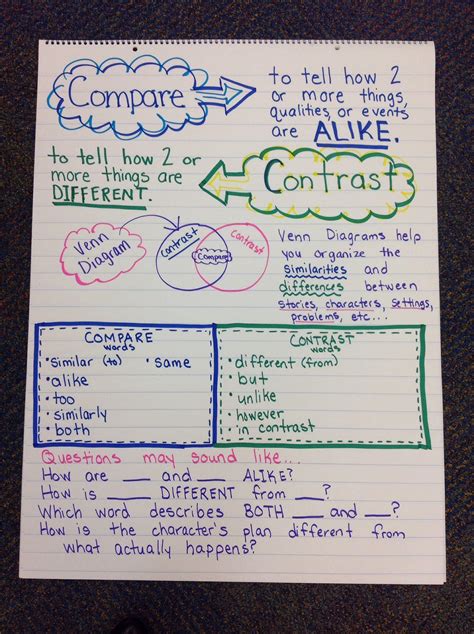 Compare
to tell how 2
or more things,
qualities, or events
are ALIKE.
to tell how 2 or
more things are
DIFFERENT.
Contrast
Venn
Diagram
Contrast
Compare
Contrast
Venn Diagrams help
you organize the
similarities and
differences between
stories, characters, settings,
problems, etc....
COMPARE
words
• similar (to) • same
• alike
• too
• similarly
• both
CONTRAST
words
• different (from)
• but
• unlike
• however
• in contrast
Questions may sound like...
How are ___ and ___ ALIKE?
How is ___ DIFFERENT from ___?
Which word describes BOTH ___ and ___?
How is the character's plan different from
what actually happens?